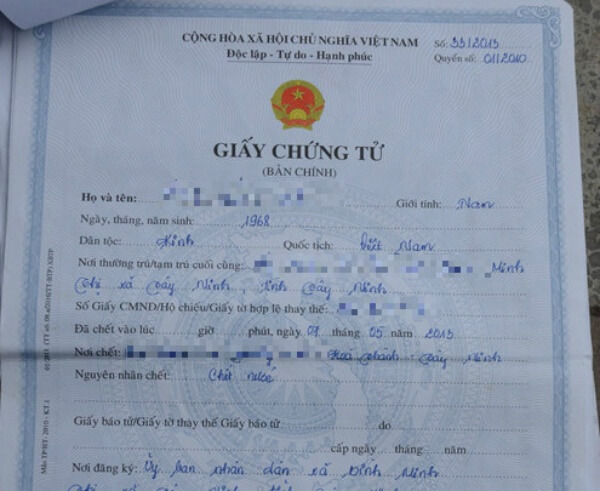 CỘNG HÒA XÃ HỘI CHỦ NGHĨA VIỆT NAM
Độc lập - Tự do - Hạnh phúc
Số: 33/2013
Quyển số: 01/2010
GIẤY CHỨNG TỬ
(BẢN CHÍNH)
Họ và tên: Giới tính: Nam
Ngày, tháng, năm sinh: 1968
Dân tộc: Kinh Quốc tịch: Việt Nam
Nơi thường trú/tạm trú cuối cùng: Minh
Thị xã Tây Ninh, tỉnh Tây Ninh
Số Giấy CMND/Hộ chiếu/Giấy tờ hợp lệ thay thế:
Đã chết vào lúc giờ phút, ngày tháng 05 năm 2013
Nơi chết: Hòa Thành Tây Ninh
Nguyên nhân chết: Chết nước
Giấy báo tử/Giấy tờ thay thế Giấy báo tử do
cấp ngày tháng năm
Nơi đăng ký: Ủy ban nhân dân xã Bình Minh
Thị xã